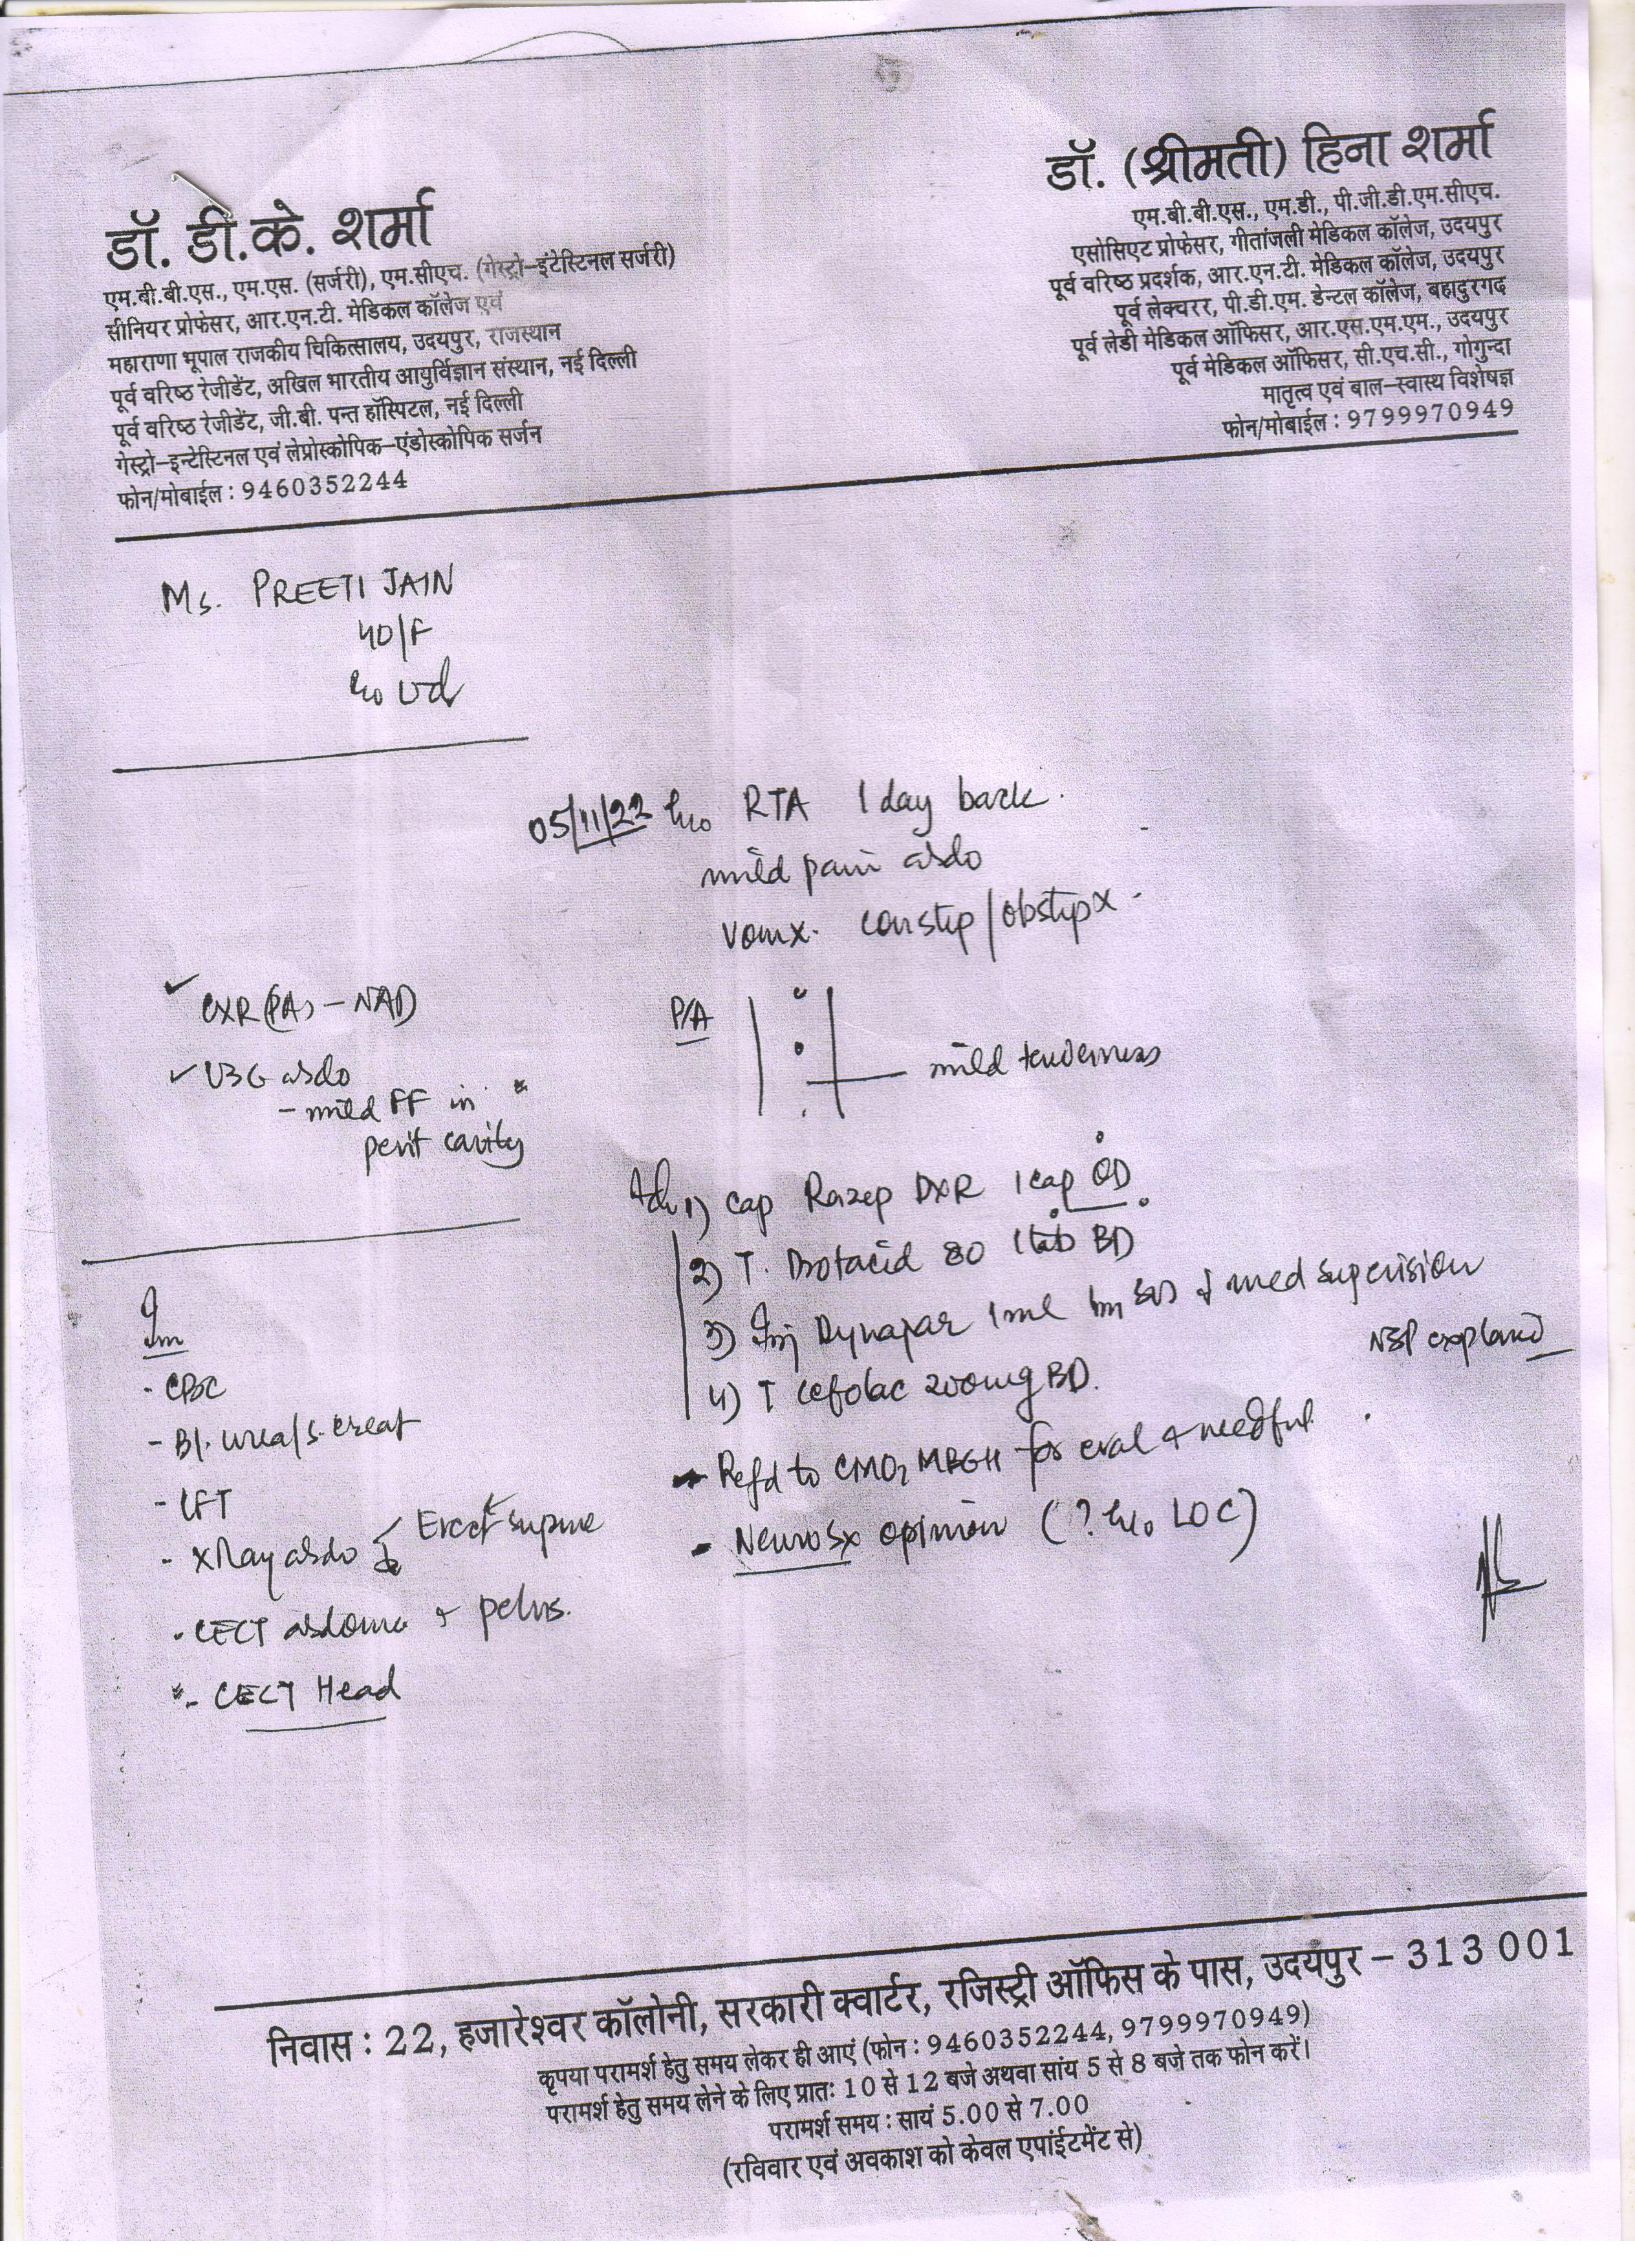 डॉ. डी.के. शर्मा
एम.बी.बी.एस., एम.एस. (सर्जरी), एम.सीएच. (गेस्ट्रो-इंटेस्टिनल सर्जरी)
सीनियर प्रोफेसर, आर.एन.टी. मेडिकल कॉलेज एवं
महाराणा भूपाल राजकीय चिकित्सालय, उदयपुर, राजस्थान
पूर्व वरिष्ठ रेजीडेंट, अखिल भारतीय आयुर्विज्ञान संस्थान, नई दिल्ली
पूर्व वरिष्ठ रेजीडेंट, जी.बी. पन्त हॉस्पिटल, नई दिल्ली
गेस्ट्रो-इन्टेस्टिनल एवं लेप्रोस्कोपिक-एंडोस्कोपिक सर्जन
फोन/मोबाईल : 9460352244
डॉ. (श्रीमती) हिना शर्मा
एम.बी.बी.एस., एम.डी., पी.जी.डी.एम.सीएच.
एसोसिएट प्रोफेसर, गीतांजली मेडिकल कॉलेज, उदयपुर
पूर्व वरिष्ठ प्रदर्शक, आर.एन.टी. मेडिकल कॉलेज, उदयपुर
पूर्व लेक्चरर, पी.डी.एम. डेन्टल कॉलेज, बहादुरगढ
पूर्व लेडी मेडिकल ऑफिसर, आर.एस.एम.एम., उदयपुर
पूर्व मेडिकल ऑफिसर, सी.एच.सी., गोगुन्दा
मातृत्व एवं बाल-स्वास्थ विशेषज्ञ
फोन/मोबाईल : 9799970949
Ms. PREETI JAIN
40/F
Ud
05/11/22 h/o RTA 1 day back.
mild pain abdo
Vom x. Constip/obstip x
CXR (PA) - NAD
USG abdo
- mild FF in
perit cavity
P/A
mild tenderness
Adv 1) cap Razep DXR 1 cap OD
2) T. 80 1 tab BD
3) Inj Dynapar 1 ml im SOS med supervision
explained
4) T Cefolac 200mg BD.
- Refd to CMO, MBGH for eval & needful
- NeuroSx opinion (? h/o LOC)
Inv
- CBC
- Bl. urea/s. creat
- LFT
- X Ray abdo Erect supine
- CECT abdome + pelvis.
- CECT Head
निवास : 22, हजारेश्वर कॉलोनी, सरकारी क्वार्टर, रजिस्ट्री ऑफिस के पास, उदयपुर - 313 001
कृपया परामर्श हेतु समय लेकर ही आएं (फोन : 9460352244, 9799970949)
परामर्श हेतु समय लेने के लिए प्रातः 10 से 12 बजे अथवा सांय 5 से 8 बजे तक फोन करें।
परामर्श समय : सायं 5.00 से 7.00
(रविवार एवं अवकाश को केवल एपांईटमेंट से)